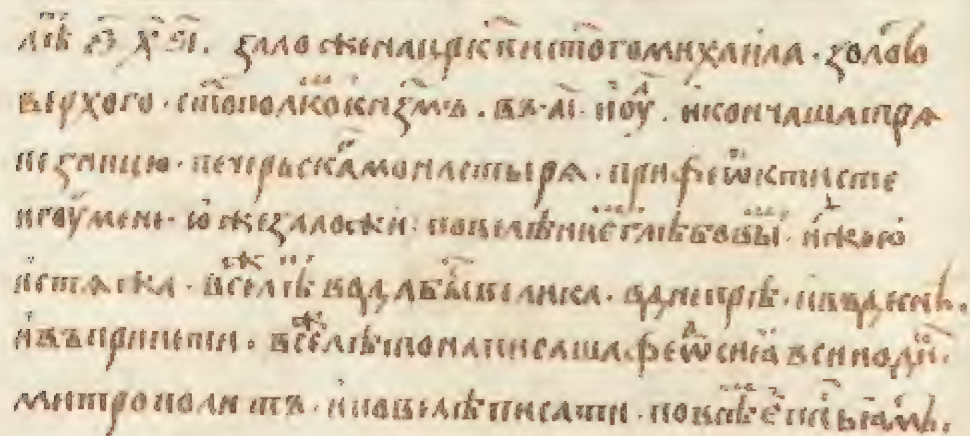 лѣⷮ ҂ѕ҃ х҃ ѕ҃і. заложена црк҃ви ст҃ого михаила · золотоⷡ
вѣрхого · ст҃ополкоⷨ кнѧзмъ . въ · а҃і · иоуⷧ . и кончаша тра
пезницю · печерьскаⷢ монастырѧ · при феѡктисте
игоумене · юже заложи · повелѣниеⷨ глѣбовыⷨ · иже ю
и стѧжа · в сеⷤ лѣⷮ вода быⷭ велика · в днепрѣ · и въ деснѣ.
и въ припети . в сеⷤ лѣто написаша феѡⷣсиꙗ в сеноди҃.
митрополитъ · и повелѣ писати · по всѣⷨ еп҃пьꙗмъ.